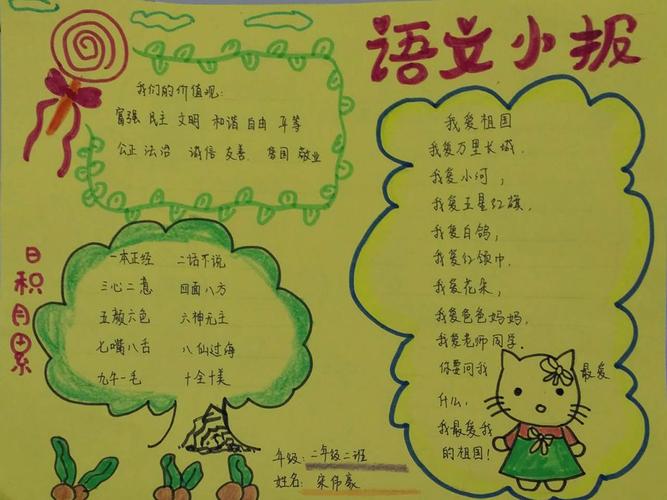 语文小报
我们的价值观:
富强 民主 文明 和谐 自由 平等
公正 法治 诚信 友善 爱国 敬业
日积月累
一本正经 二话不说
三心二意 四面八方
五颜六色 六神无主
七嘴八舌 八仙过海
九牛一毛 十全十美
我爱祖国
我爱万里长城,
我爱小河,
我爱五星红旗,
我爱白鸽,
我爱红领巾,
我爱花朵,
我爱爸爸妈妈,
我爱老师同学.
你要问我 最爱
什么,
我最爱我
的祖国!
年级: 二年级二班
姓名: 宋伟豪